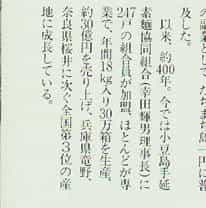 及した。
以来、約400年。今では小豆島手延
素麺協同組合（幸田輝男理事長）に
247戸の組合員が加盟、ほとんどが専
業で、年間18kg入り30万箱を生産。
約30億円を売り上げ、兵庫県竜野、
奈良県桜井に次ぐ全国第3位の産
地に成長している。